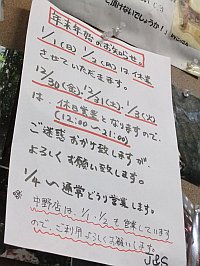 頂けないでしょうか！
年末年始のお知らせ。
1/1(日) 1/2(月)は休業
させていただきます。
12/30(金) 12/31(土) 1/3(火)
は、休日営業となりますので、
(12:00〜21:00)
ご迷惑おかけ致しますが、
よろしくお願い致します。
1/4〜通常どうり営業します。
中野店は、1/1、1/2も営業しています
ので、ご利用よろしくお願いします。
J&S